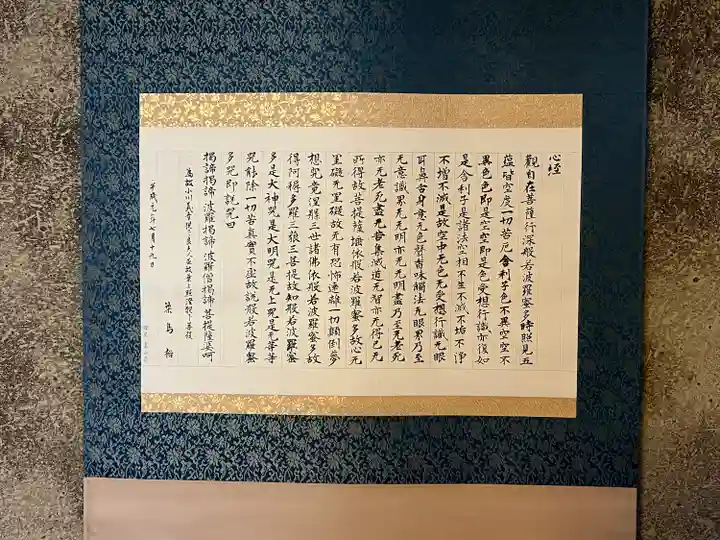 心経
観自在菩薩行深般若波羅蜜多時照見五
蘊皆空度一切苦厄舎利子色不異空空不
異色色即是空空即是色受想行識亦復如
是舎利子是諸法空相不生不滅不垢不浄
不増不減是故空中无色无受想行識无眼
耳鼻舌身意无色声香味触法无眼界乃至
无意識界无无明亦无无明盡乃至无老死
亦无老死盡无苦集滅道无智亦无得已无
所得故菩提薩埵依般若波羅蜜多故心无
罣礙无罣礙故无有恐怖遠離一切顛倒夢
想究竟涅槃三世諸佛依般若波羅蜜多故
得阿耨多羅三藐三菩提故知般若波羅蜜
多是大神咒是大明咒是无上咒是无等等
咒能除一切苦真實不虚故説般若波羅蜜
多咒即説咒曰
揭諦揭諦 波羅揭諦 波羅僧揭諦 菩提薩婆呵
為故小川義
平成十二年七月十九日